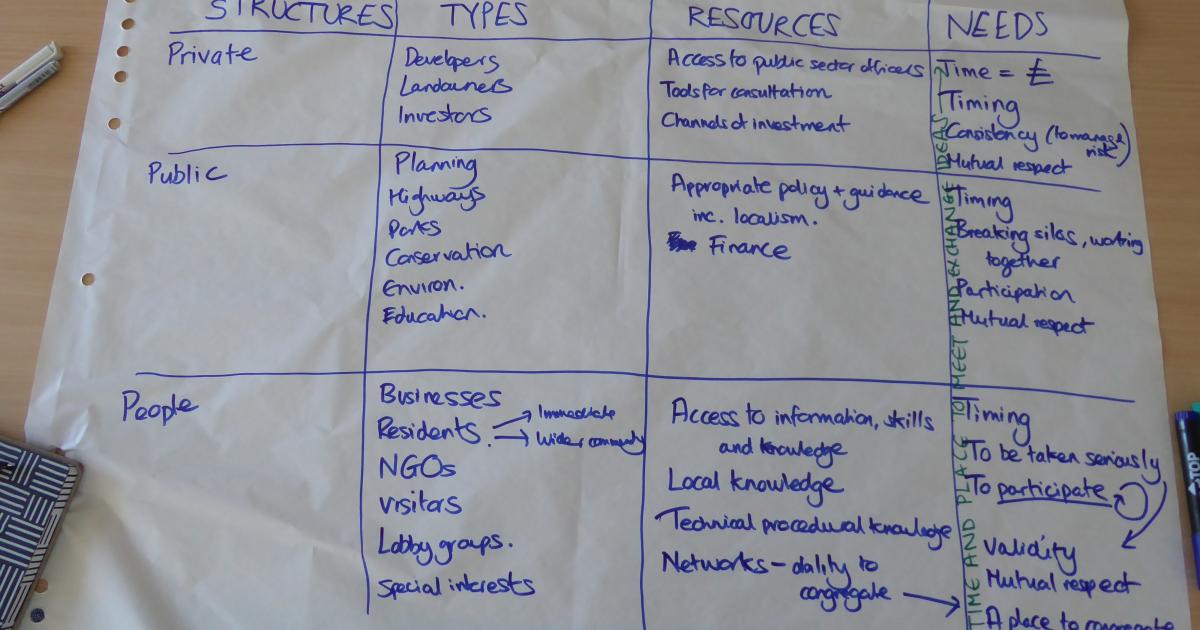 STRUCTURES TYPES RESOURCES NEEDS
Private
Developers
Landowners
Investors
Access to public sector officers
Tools for consultation
Channels of investment
Time = £
Timing
Consistency (to manage
risk)
Mutual respect
Public
Planning
Highways
Parks
Conservation
Environ.
Education.
Appropriate policy + guidance
inc. localism.
Finance
Timing
Breaking silos, working
together
Participation
Mutual respect
People
Businesses
Residents. → Immediate
→ Wider community
NGOs
Visitors
Lobby groups.
Special interests
Access to information, skills
and knowledge
Local knowledge
Technical procedural knowledge
Networks - ability to
congregate →
Timing
To be taken seriously
To participate
Validity
Mutual respect
A place to congregate
TIME AND PLACE TO MEET AND EXCHANGE IDEAS